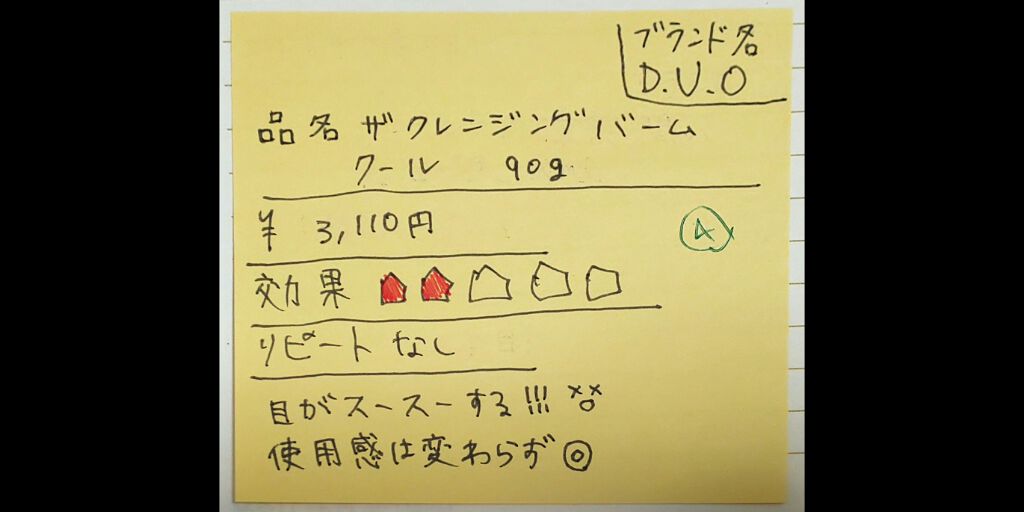 ブランド名
D.U.O
品名 ザクレンジングバーム
クール 90g
¥ 3,110円
A
効果
リピート なし
目がスースーする!!!
使用感は変わらず◎